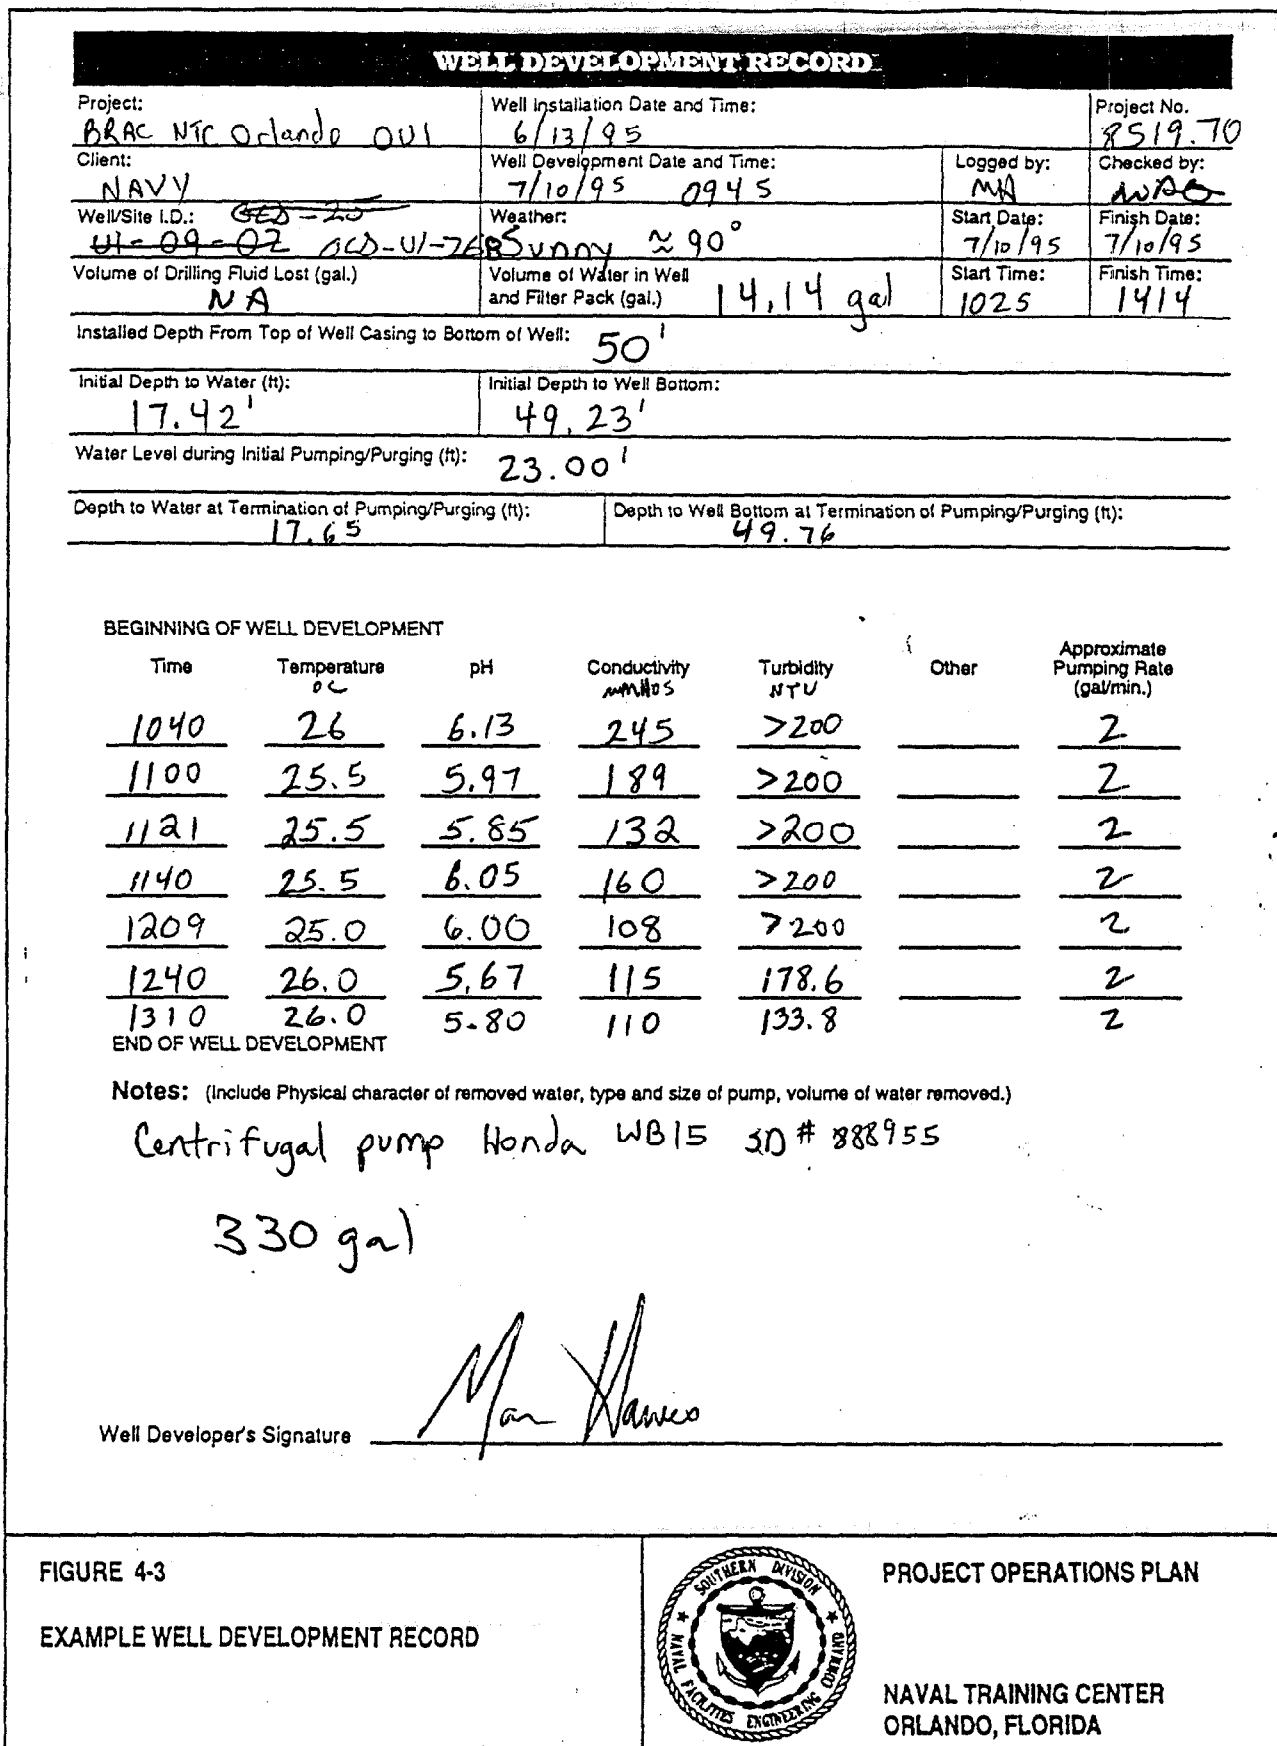 WELL DEVELOPMENT RECORD
Project: Well Installation Date and Time: Project No.
BRAC NTC Orlando OU1 6/13/95 8519.70
Client: Well Development Date and Time: Logged by: Checked by:
NAVY 7/10/95 0945 MH
Well/Site I.D.: Weather: Start Date: Finish Date:
U1-09-02 OLD-U1-26B Sunny ≈ 90° 7/10/95 7/10/95
Volume of Drilling Fluid Lost (gal.) Volume of Water in Well Start Time: Finish Time:
NA and Filter Pack (gal.) 14.14 gal 1025 1414
Installed Depth From Top of Well Casing to Bottom of Well: 50'
Initial Depth to Water (ft): Initial Depth to Well Bottom:
17.42' 49.23'
Water Level during Initial Pumping/Purging (ft): 23.00'
Depth to Water at Termination of Pumping/Purging (ft): Depth to Well Bottom at Termination of Pumping/Purging (ft):
17.65 49.76
BEGINNING OF WELL DEVELOPMENT
Time Temperature pH Conductivity Turbidity Other Approximate Pumping Rate (gal/min.)
°C NTU
1040 26 6.13 245 >200 2
1100 25.5 5.97 189 >200 2
1121 25.5 5.85 132 >200 2
1140 25.5 6.05 160 >200 2
1209 25.0 6.00 108 >200 2
1240 26.0 5.67 115 178.6 2
1310 26.0 5.80 110 133.8 2
END OF WELL DEVELOPMENT
Notes: (Include Physical character of removed water, type and size of pump, volume of water removed.)
Centrifugal pump Honda WB15 ID# 888955
330 gal
Well Developer's Signature
FIGURE 4-3
EXAMPLE WELL DEVELOPMENT RECORD
SOUTHERN DIVISION
NAVAL FACILITIES ENGINEERING COMMAND
PROJECT OPERATIONS PLAN
NAVAL TRAINING CENTER
ORLANDO, FLORIDA